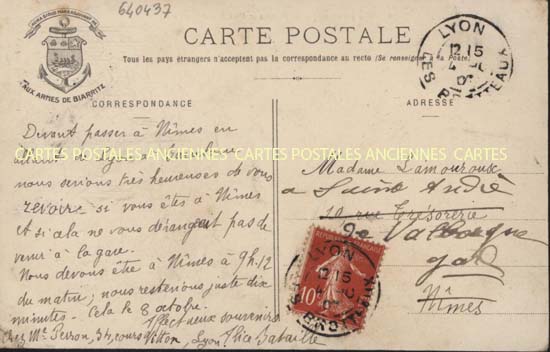 640437
CARTE POSTALE
Tous les pays étrangers n'acceptent pas la correspondance au recto (Se renseigner à la Poste)
AUX ARMES DE BIARRITZ
CORRESPONDANCE
ADRESSE
LYON
12 15
LES BROTTEAUX
CARTES POSTALES ANCIENNES CARTES POSTALES ANCIENNES CARTES POSTALES ANCIENNES
Devant passer à Nîmes en
allant de Lyon à
nous serions très heureuses de vous
revoir si vous êtes à Nîmes
et si cela ne vous dérangeait pas de
venir à la gare.
Nous devons être à Nîmes à 9h.12
du matin; nous resterions juste dix
minutes. Cela le 8 octobre.
Affectueux souvenirs
Chez Me Perron, 34, cours Vitton, Lyon. Alice Bataille
Madame Lamouroux
a Saint André
10 rue Trésorerie
de Valborgne
gard
Nîmes
LYON
12 15
LES BROTTEAUX
10